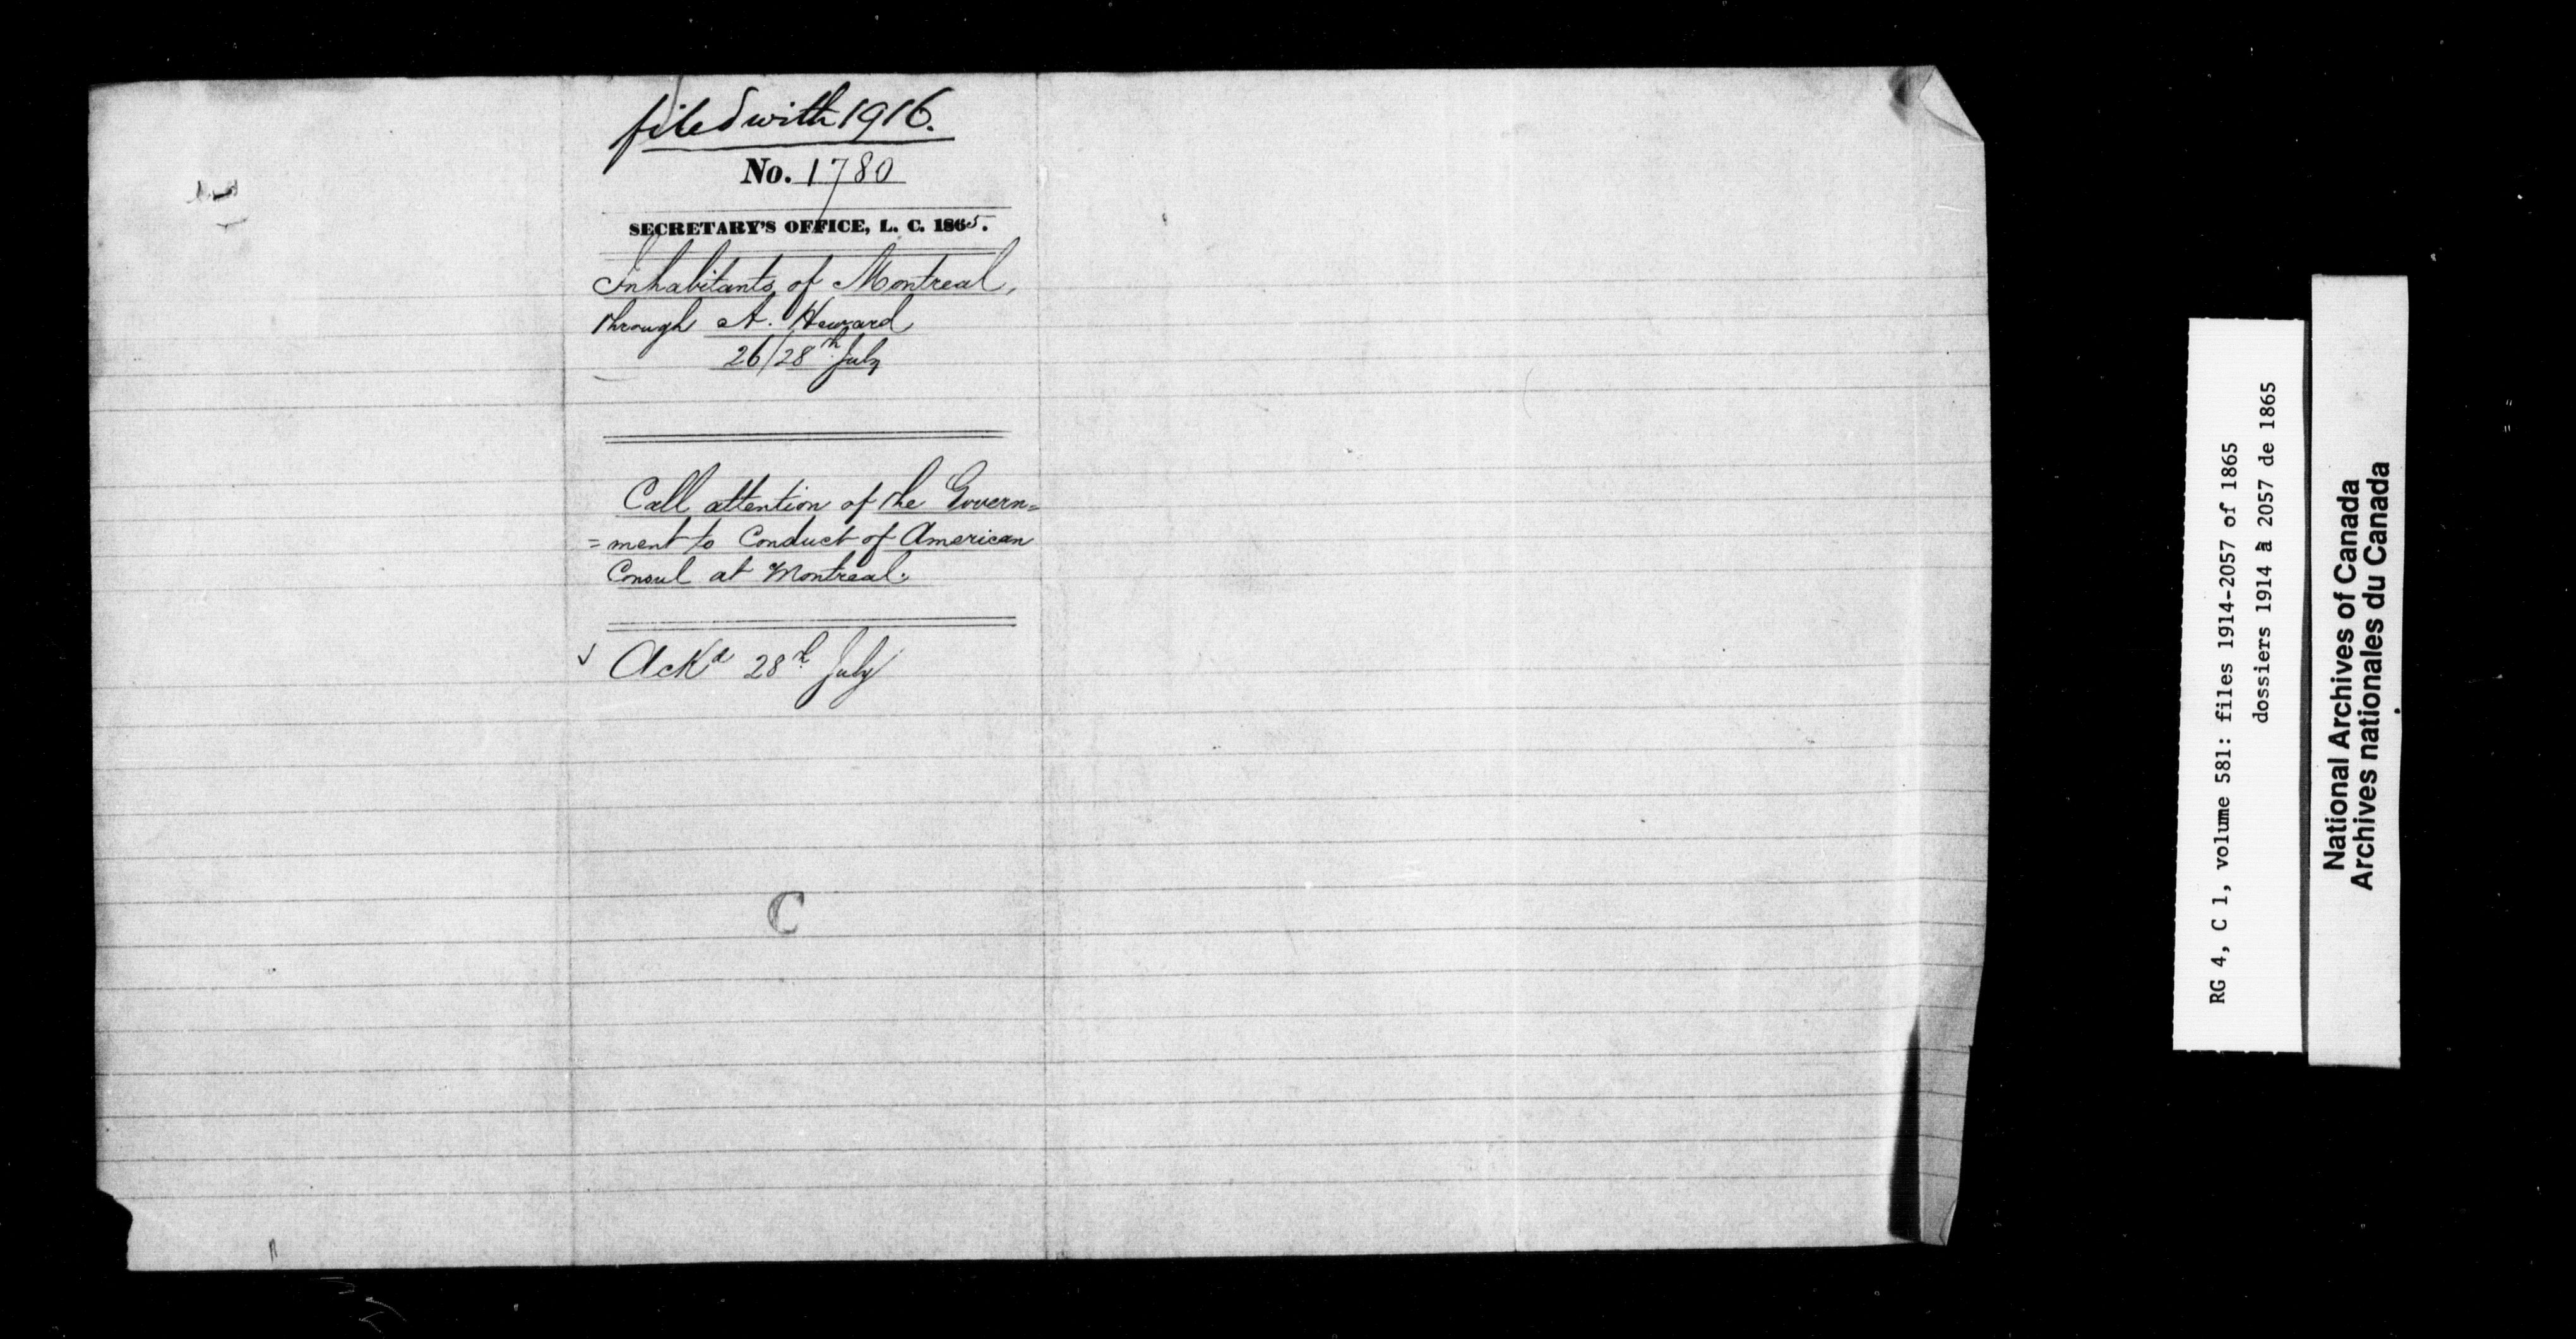 filed with 1916.
No. 1780
SECRETARY'S OFFICE, L. C. 1865.
Inhabitants of Montreal,
through A. Heward
26/28th July
Call attention of the Govern=
=ment to Conduct of American
Consul at Montreal.
✓ Ackd 28th July
C
RG 4, C 1, volume 581: files 1914-2057 of 1865
dossiers 1914 à 2057 de 1865
National Archives of Canada
Archives nationales du Canada